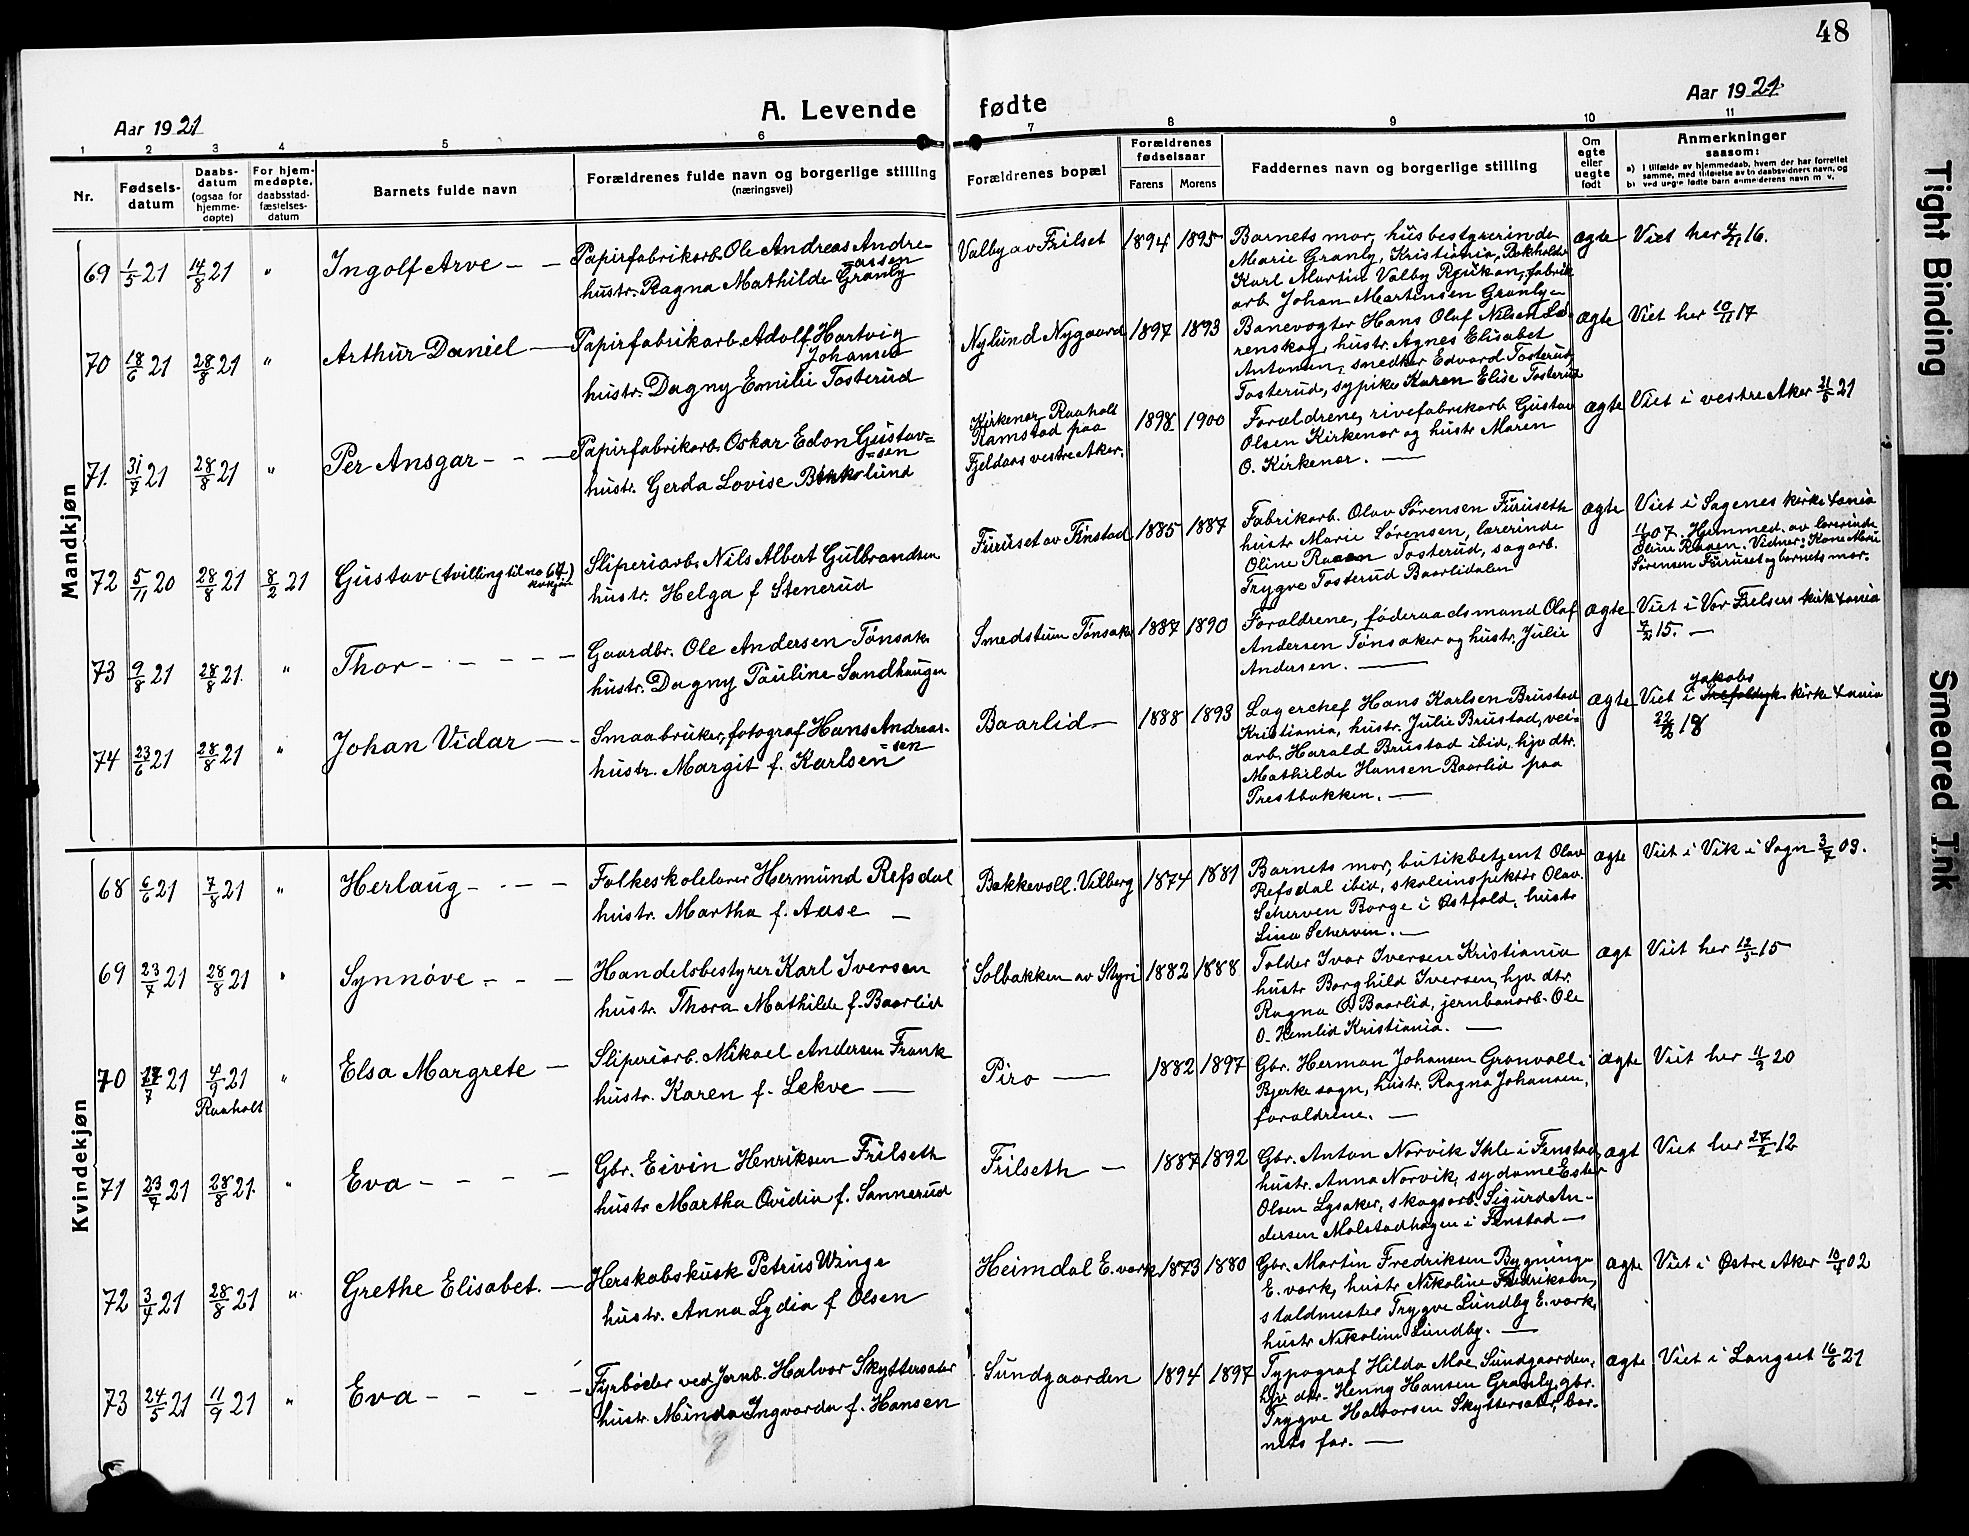 48
Aar 1921
A. Levende fødte
Aar 1921
1 2 3 4 5 6 7 8 9 10 11
Nr.
Fødsels-
datum
Daabs-
datum
(ogsaa for
hjemme-
døpte)
For hjem-
medøpte,
daabsstad-
fæstelses-
datum
Barnets fulde navn
Forældrenes fulde navn og borgerlige stilling
(næringsvei)
Forældrenes bopæl
Forældrenes
fødselsaar
Farens Morens
Faddernes navn og borgerlige stilling
Om
egte
eller
uegte
født
Anmerkninger
saasom:
a) i tilfælde av hjemmedaab, hvem der har forrettet
samme, med tilføielse av to daabsvidners navn, og
b) ved uegte fødte barn anmelderens navn m. v.
Mandkjøn
69 1/5 21 14/8 21 "
Ingolf Arve - -
Papirfabrikarb. Ole Andreas Andre-
=assen
hustr. Ragna Mathilde Granly
Valby av Frilset
1894 1895
Barnets mor, husbestyrerinde
Marie Granly, Kristiania,
Karl Martin Valby Rjukan, fabrik
arb Johan Martinsen Granly-
ægte
Viet her 4/11 16.
70 18/6 21 28/8 21 "
Arthur Daniel -
Papirfabrikarb. Adolf Hartvig
Johansen
hustr. Dagny Emilie Tosterud
Nylund Nygaard
1897 1893
Banevogter Hans Olaf Nilsen Lø-
renskog, hustr. Agnes Elisabet
Antonsen, snedker Edvard Tosterud,
Tosterud, sypike Karen Elise Tosterud
ægte
Viet her 10/11 17
71. 31/7 21 28/8 21 "
Per Ansgar - - -
Papirfabrikarb. Oskar Edon Gustav=
=sen
hustr. Gerda Lovise Binkslund
Kirkenær Raaholt
Ramstad paa
Fjeldaas vestre Aker.
1898 1900
Forældrene, rivefabrikarb Gustav
Olsen Kirkenær og hustr Maren
O. Kirkenær. -
ægte
Viet i vestre Aker 21/5 21
72 5/11 20 28/8 21 8/2 21
Gustav (tvilling til no 64)
kvkjøn
Sliperiarb. Nils Albert Gulbrandsen
hustr. Helga f Stenerud
Furuset av Finstad
1885 1887
Fabrikarb. Olav Sørensen Furuseth
hustr Marie Sørensen, lærerinde
Oline Raaen Tosterud, sagarb.
Trygve Tosterud Baarlidalen
ægte
Viet i Sagenes kirke Xania
07. Hjemmed. av lærerinde
Oline Raaen. Vidner: Kone Marie
Sørensen Furuset og barnets mor.
73 9/8 21 28/8 21. "
Thor - - - - -
Gaardbr. Ole Andersen Tønsak
hustr. Dagny Pauline Sandhaugen
Smedstuen Tønsak
1887 1890
Forældrene, føderaadsmand Olaf
Andersen Tønsaker og hustr. Julie
Andersen. -
ægte
Viet i Vor Frelsers kirk Xania
15. -
74 23/6 21 28/8 21 "
Johan Vidar - -
Smaabruker, fotograf Hans Andreas-
=sen
hustr. Margit f. Karlsen
Baarlid -
1888 1893
Lagerchef Hans Karlsen Brustad
Kristiania, hustr. Julie Brustad, vei-
arb. Harald Brustad ibid, hjv dtr.
Mathilde Hansen Baarlid paa
Prestbakken. -
ægte
Jakobs
Viet i kirke Xania
18
Kvindekjøn
68 6/6 21 7/8 21 "
Herlaug - - -
Folkeskolelærer Hermund Refsdal
hustr. Martha f. Aase -
Bakkevoll. Vilberg
1874 1881
Barnets mor, butikbetjent Olav
Refsdal ibid, skoleinspektør Olav
Scherven Borge i Østfold, hustr
Lina Schervin. -
ægte
Viet i Vik i Sogn 3/7 03.
69 23/7 21 28/8 21 "
Synnøve - - -
Handelsbestyrer Karl Iversen
hustr. Thora Mathilde f. Baarlid
Solbakken av Styri
1882 1888
Tolder Ivar Iversen Kristiania
hustr Borghild Iversen, hjv. dtr.
Ragna O. Baarlid, jernbanarb. Ole
O. Hemlid Kristiania. -
ægt
Viet her 12/5 15
70 17/7 21 4/9 21 "
Raaholt
Elsa Margrete -
Sliperiarb. Mikael Andersen Frank
hustr. Karen f. Lekve -
Piro -
1882 1897
Gbr. Herman Johansen Granvoll i
Bjerke sogn, hustr. Ragna Johansen,
forældrene. -
ægte
Viet her 4/9 20
71 23/7 21 28/8 21. "
Eva - - - - -
Gbr. Eivin Henriksen Frilseth
hustr Martha Ovidia f. Sannerud
Frilseth -
1887 1892
Gbr. Anton Norvik Ihle i Fenstad,
hustr. Anna Norvik, sydame Ester
Olsen Lysaker, skogsarb. Sigurd An-
dersen Molstadhagen i Fenstad -
ægt
Viet her 27/2 12
72 3/4 21 28/8 21 "
Grethe Elisabet. -
Herskabskusk Petrus Winge
hustr. Anna Lydia f Olsen
Heimdal E. værk
1873 1880
Gbr. Martin Fredriksen Bygningen
E. værk, hustr Nikoline Fredriksen,
staldmester Trygve Lundby E. værk,
hustr Nikoline Lundby. -
ægte
Viet i Østre Aker 10/4 02
73 24/5 21 11/9 21 "
Eva - - - -
Fyrbøder ved Jernb. Halvor Skyttersæter
hustr. Minda Ingvarda f. Hansen
Sundgaarden
1894 1897
Typograf Hilda Moe Sundgaarden,
hjv dtr. Henny Hansen Granly, gbr.
Trygve Halvorsen Skyttersæter, bar-
nets far. -
ægte
Viet i Langset 16/6 21
Tight Binding
Smeared Ink